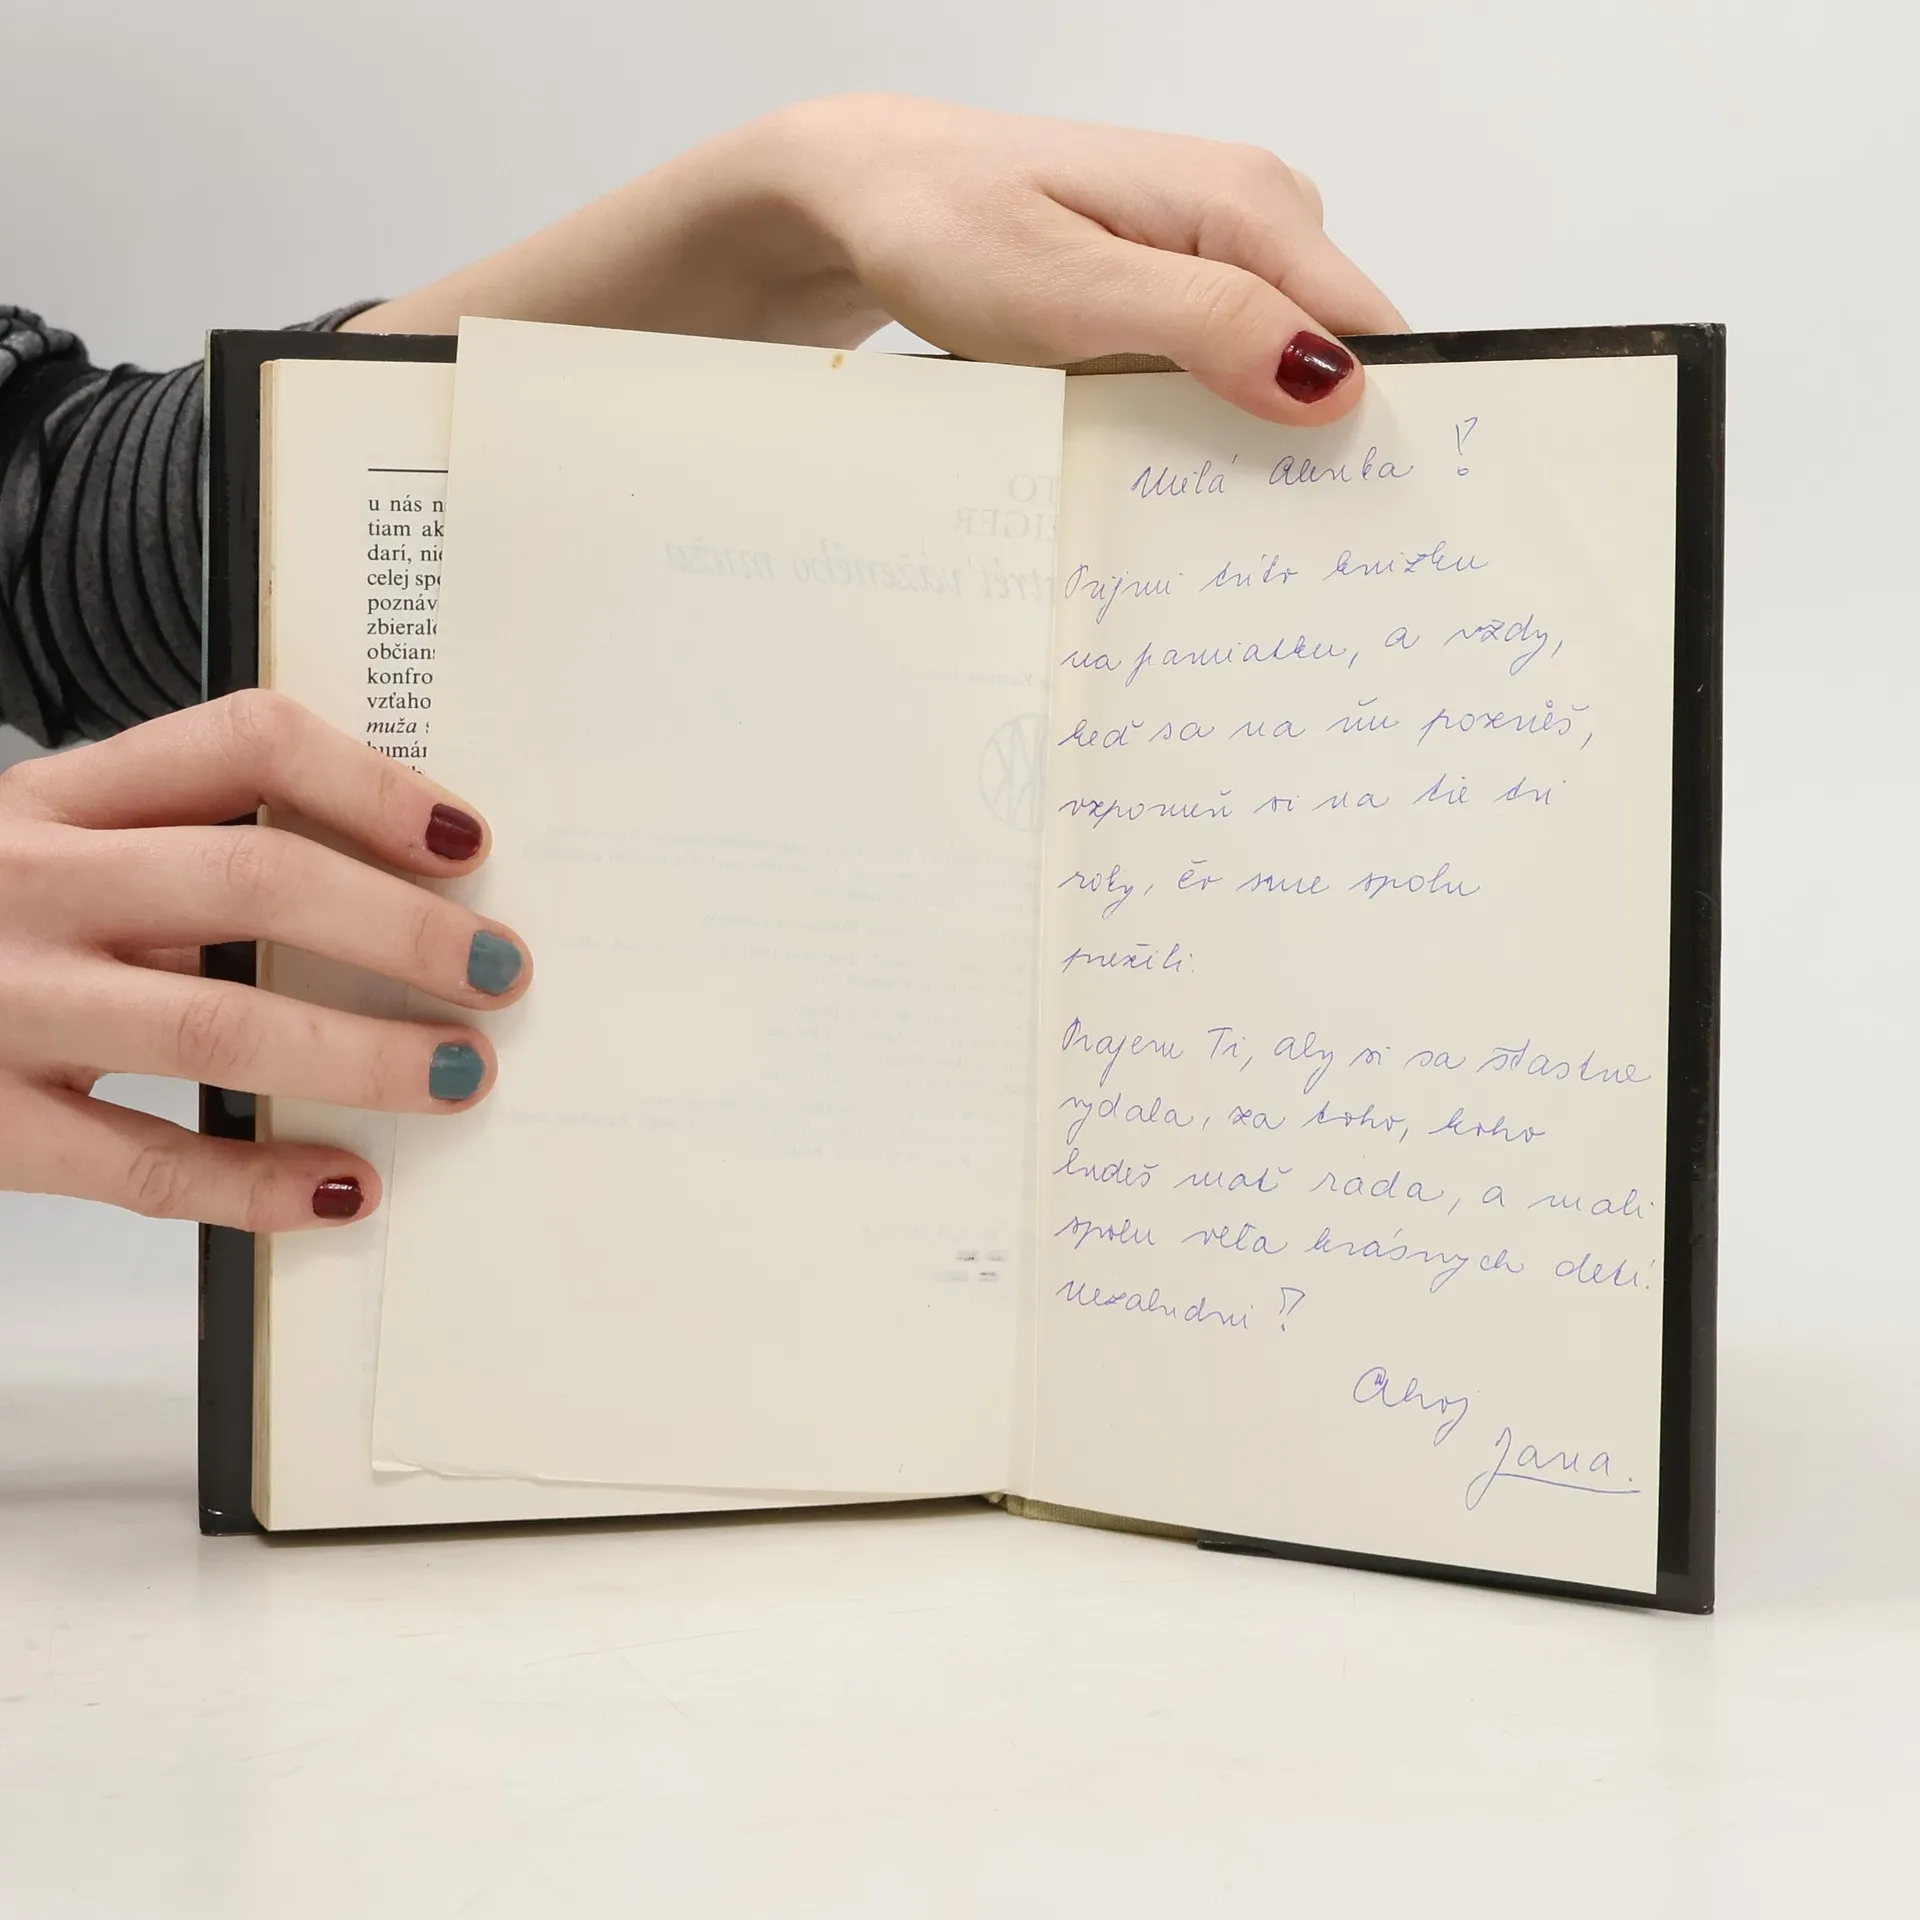 u nás n
tiam ak
darí, nie
celej spo
poznáv
zbieralo
občians
konfro
vzťaho
muža s
humán
TO
EIGER
trét váženého muža
Milá Alenka!
Prijmi túto knižku
na pamiatku, a vždy,
keď sa na ňu pozrieš,
vzpomeň si na tie tri
roky, čo sme spolu
prežili.
Prajem Ti, aby si sa šťastne
vydala, za toho, koho
budeš mať rada, a mali
spolu veľa krásnych detí!
Nezabudni!
Ahoj
Jana.